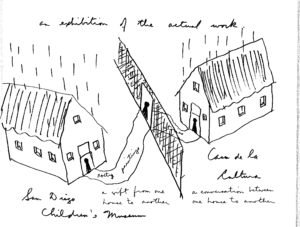 an exhibition of the actual work
poetry paintings
Casa de la
Cultura
San Diego
Children's Museum
a gift from one
house to another
a conversation between
one house to another